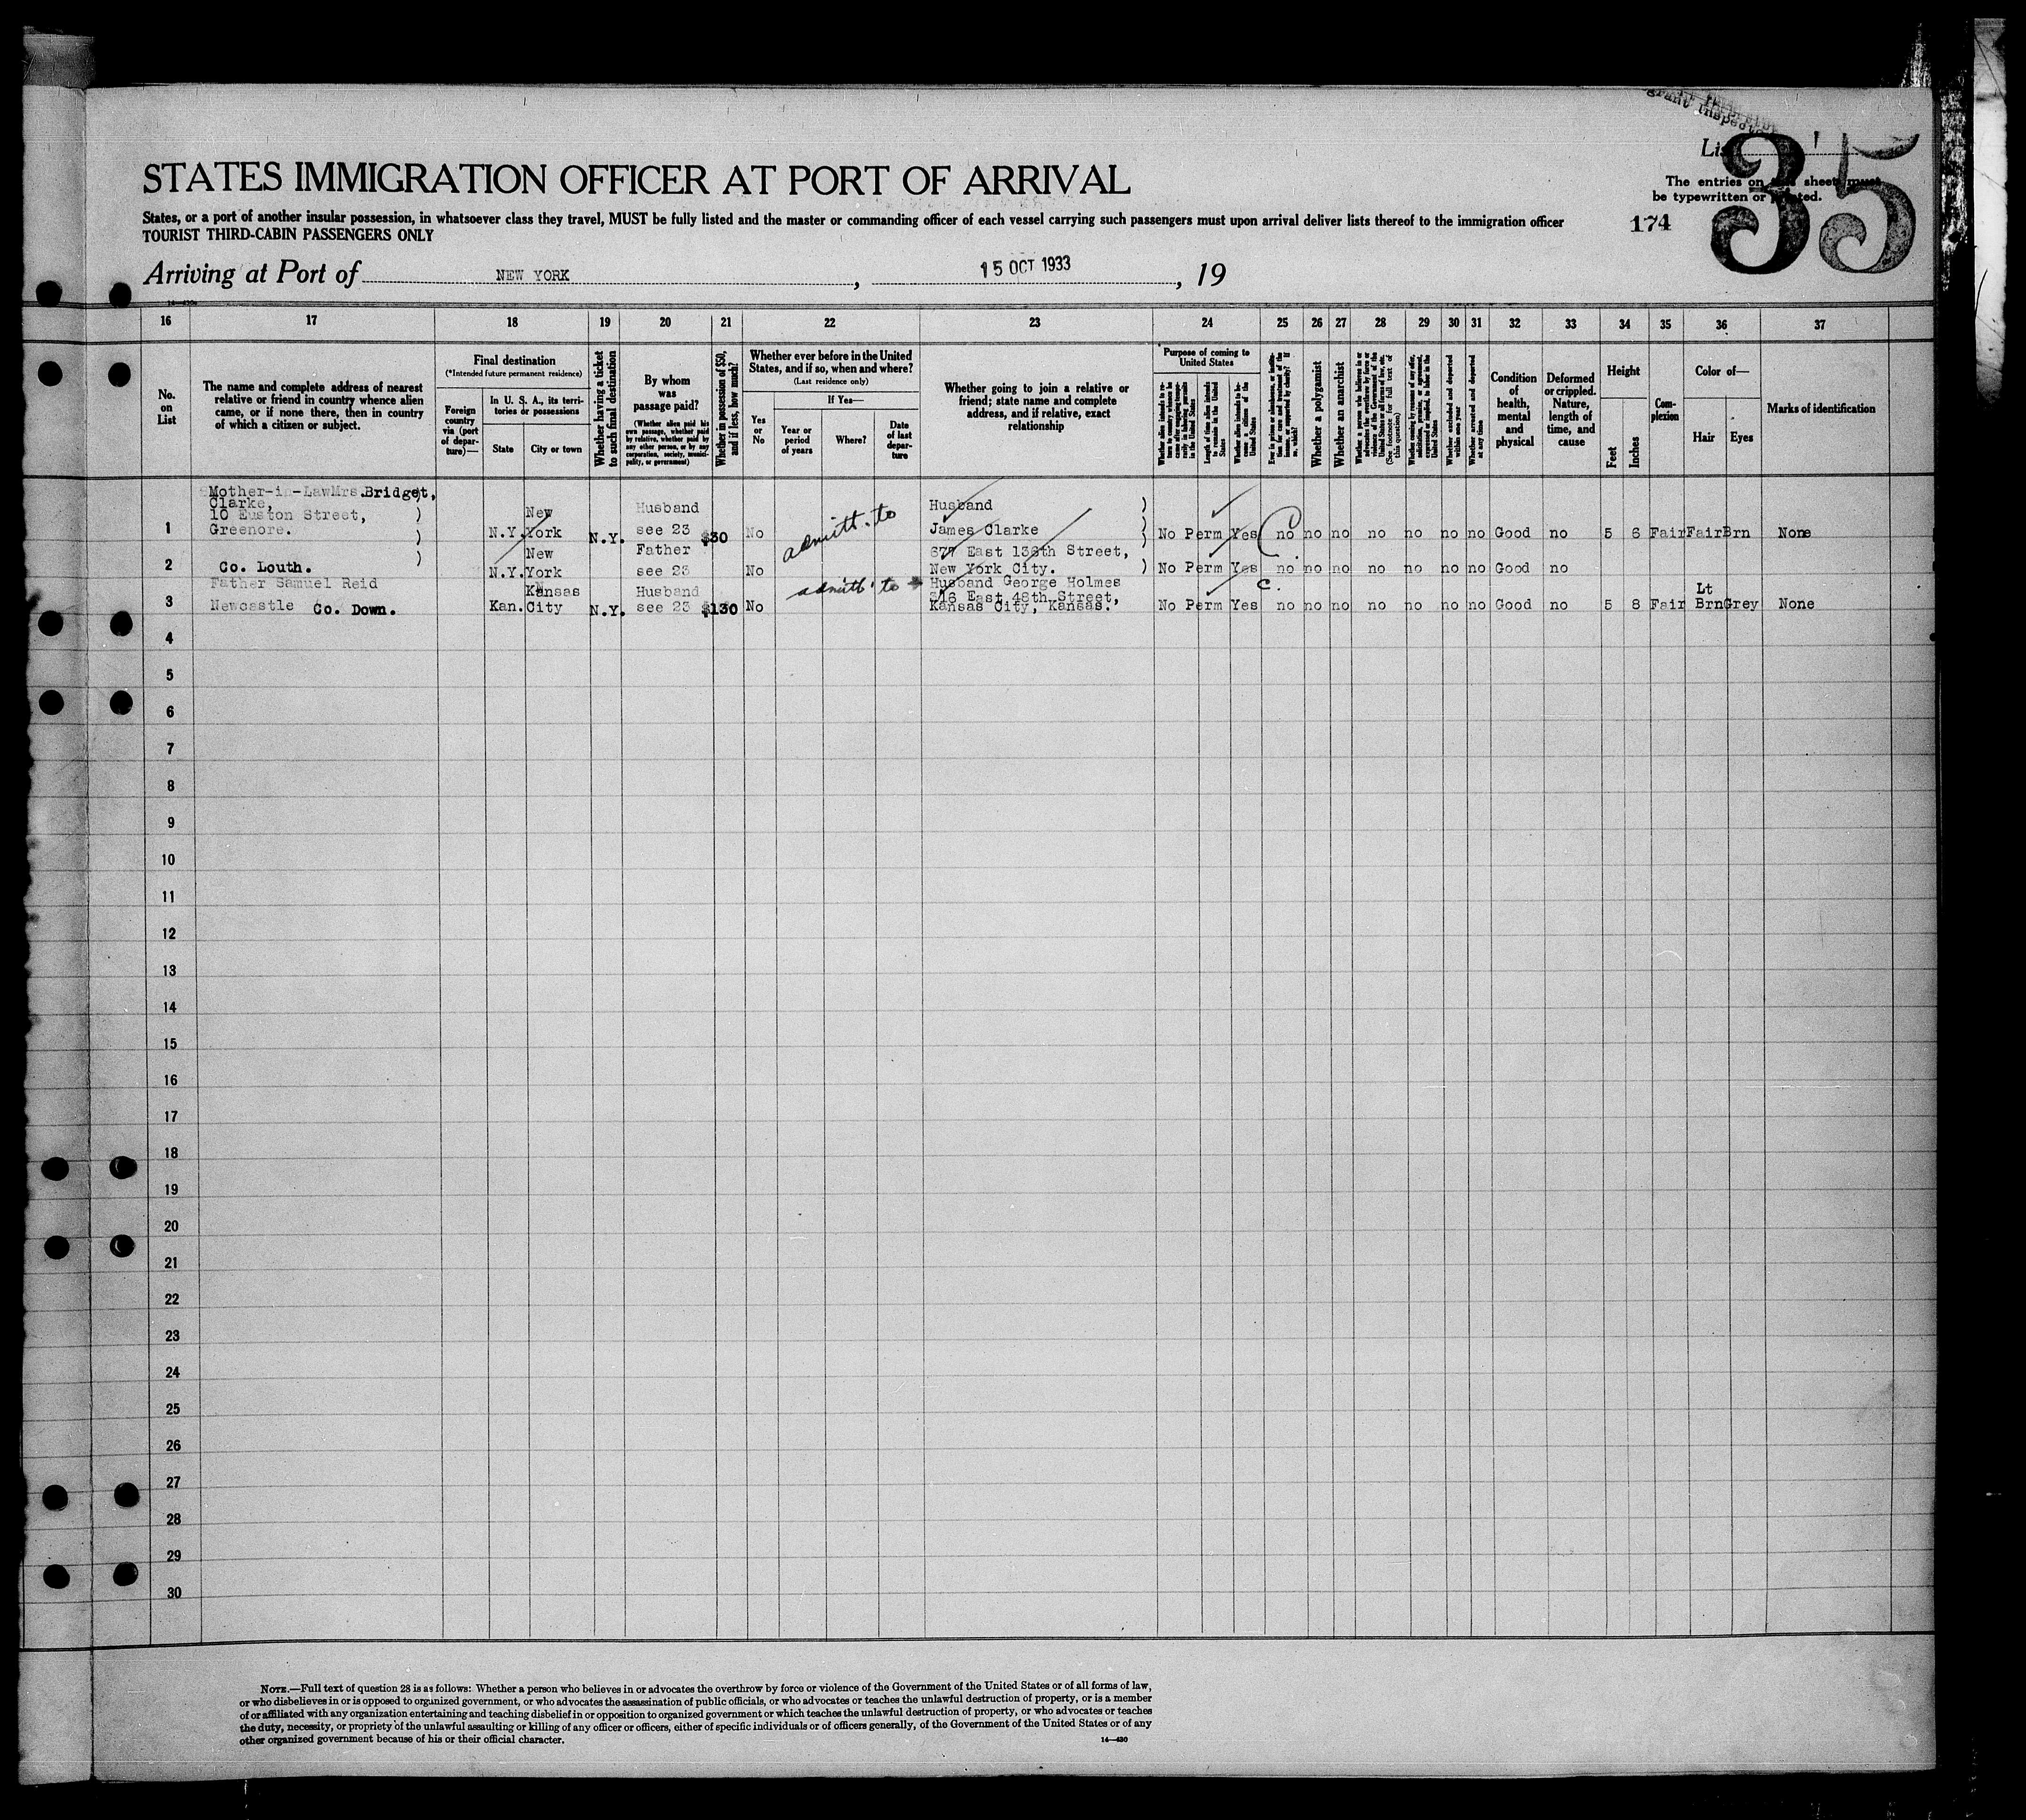 grant Inspector
35
List
STATES IMMIGRATION OFFICER AT PORT OF ARRIVAL
The entries on this sheet must
be typewritten or printed.
States, or a port of another insular possession, in whatsoever class they travel, MUST be fully listed and the master or commanding officer of each vessel carrying such passengers must upon arrival deliver lists thereof to the immigration officer
TOURIST THIRD-CABIN PASSENGERS ONLY
174
Arriving at Port of NEW YORK, 15 OCT 1933, 19
14—430
16 17 18 19 20 21 22 23 24 25 26 27 28 29 30 31 32 33 34 35 36 37
No.
on
List
The name and complete address of nearest
relative or friend in country whence alien
came, or if none there, then in country
of which a citizen or subject.
Final destination
(*Intended future permanent residence)
Foreign
country
via (port
of depar-
ture)—
In U. S. A., its terri-
tories or possessions
State
City or town
Whether having a ticket
to such final destination
By whom
was
passage paid?
(Whether alien paid his
own passage, whether paid
by relative, whether paid by
any other person, or by any
corporation, society, munici-
pality, or government)
Whether in possession of $50,
and if less, how much?
Whether ever before in the United
States, and if so, when and where?
(Last residence only)
Yes
or
No
If Yes—
Year or
period
of years
Where?
Date
of last
depar-
ture
Whether going to join a relative or
friend; state name and complete
address, and if relative, exact
relationship
Purpose of coming to
United States
Length of time alien intends
to remain in the United
States
Whether alien intends to be-
come a citizen of the
United States
Whether a polygamist
Whether an anarchist
(See footnote for full text of
this question)
Whether excluded and deported
within one year
Whether arrested and deported
at any time
Condition
of
health,
mental
and
physical
Deformed
or crippled.
Nature,
length of
time, and
cause
Height
Feet
Inches
Com-
plexion
Color of—
Hair
Eyes
Marks of identification
Mother-in-LawMrs.Bridget,
Clarke,
10 Euston Street,
1 Greenore. N.Y. New York N.Y. Husband see 23 $30 No admitt. to Husband James Clarke No Perm Yes no no no no no no no Good no 5 6 Fair Fair Brn None
2 Co. Louth. N.Y. New York Father see 23 No 677 East 138th Street, New York City. No Perm Yes no no no no no no no Good no
Father Samuel Reid
3 Newcastle Co. Down. Kan. Kansas City N.Y. Husband see 23 $130 No admitt' to Husband George Holmes 316 East 48th Street, Kansas City, Kansas. No Perm Yes C. no no no no no no no Good no 5 8 Fair Lt Brn Grey None
4
5
6
7
8
9
10
11
12
13
14
15
16
17
18
19
20
21
22
23
24
25
26
27
28
29
30
NOTE.—Full text of question 28 is as follows: Whether a person who believes in or advocates the overthrow by force or violence of the Government of the United States or of all forms of law,
or who disbelieves in or is opposed to organized government, or who advocates the assassination of public officials, or who advocates or teaches the unlawful destruction of property, or is a member
of or affiliated with any organization entertaining and teaching disbelief in or opposition to organized government or which teaches the unlawful destruction of property, or who advocates or teaches
the duty, necessity, or propriety of the unlawful assaulting or killing of any officer or officers, either of specific individuals or of officers generally, of the Government of the United States or of any
other organized government because of his or their official character.
14—430